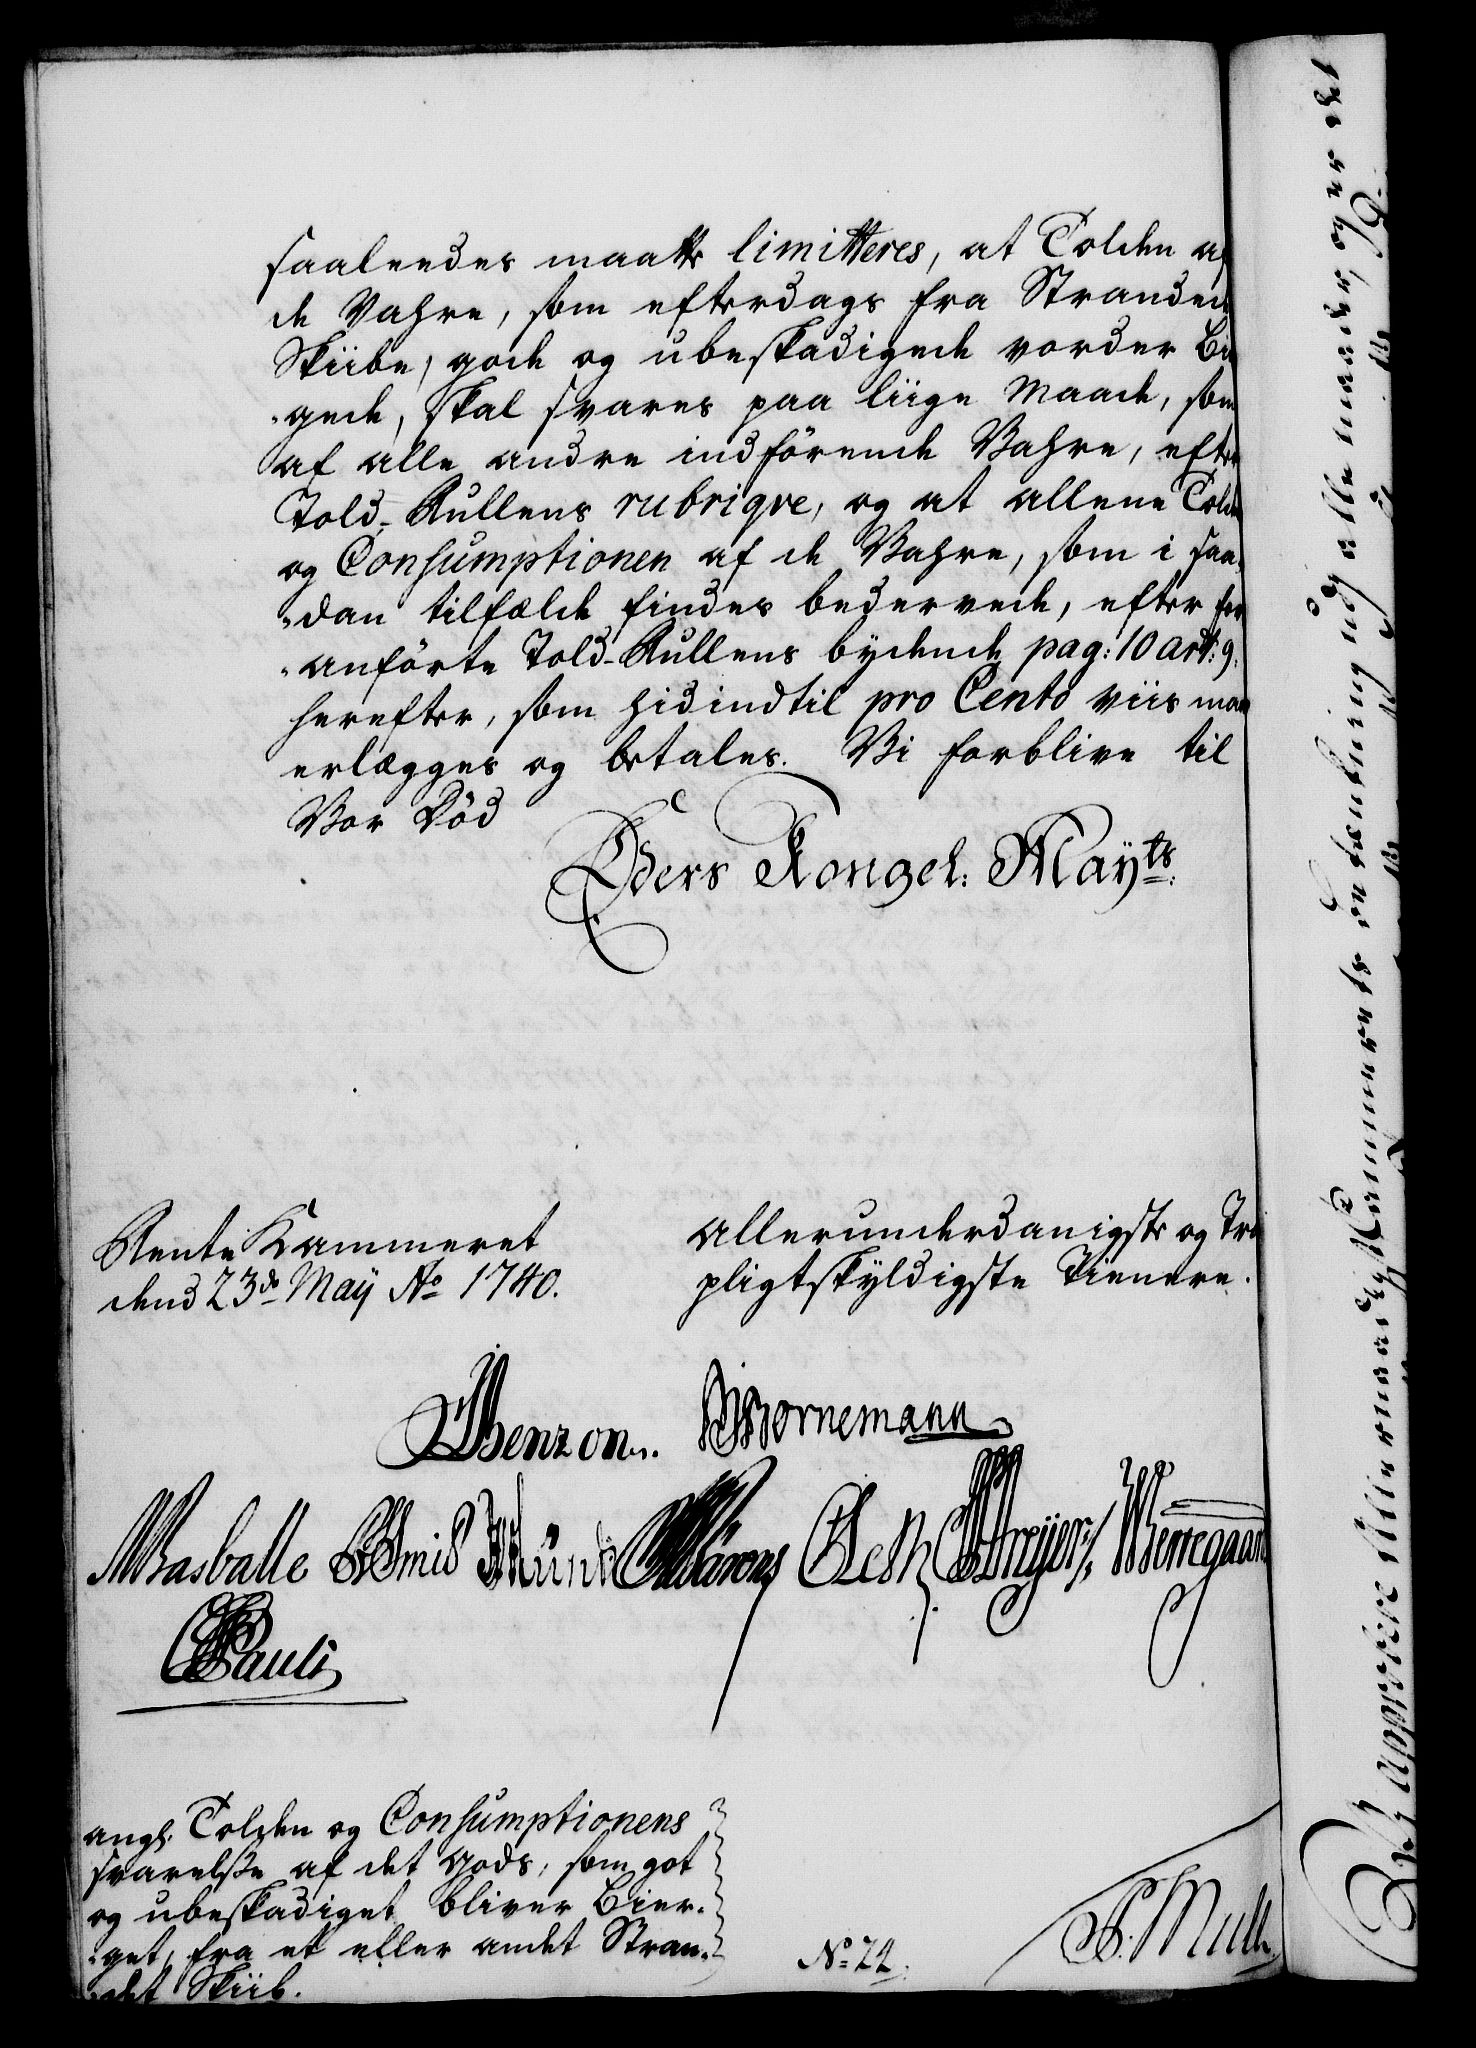 saaleedes maatte limitteres, at Tolden af
de Vahre, som efterdags fra Strandede
Skiibe, gode og ubeskadigede vorder Bier
-gede, skal svares paa liige Maade, som
af alle andre indförende Vahre, efter
Told-Rullens rubrique, og at allene Tolden
og Consumptionen af de Vahre, som i saa-
-dan tilfælde findes bedervede, efter for
-anförte Told-Rullens bydende pag: 10 art: 9.
herefter, som hidindtil pro Cento viis maa
erlægges og betales. Vi forblive til
Vor Död
Eders Kongel: Mayts:
Rente Kammeret
dend 23de May Ao 1740.
allerunderdanigste og Tro
pligtskyldigste Tienere.
Benzon. Bornemann
Basballe Smid Munk Oeth Dreyer Wernegaard
Pauli
angl. Tolden og Consumptionens
svarelse af det gods, som got
og ubeskadiget bliver Bier-
-get, fra et eller andet Stran-
-det Skiib.
No 24.
Vi approbere Allernaadigst Kammerets betænkning udj alle maader, og er det